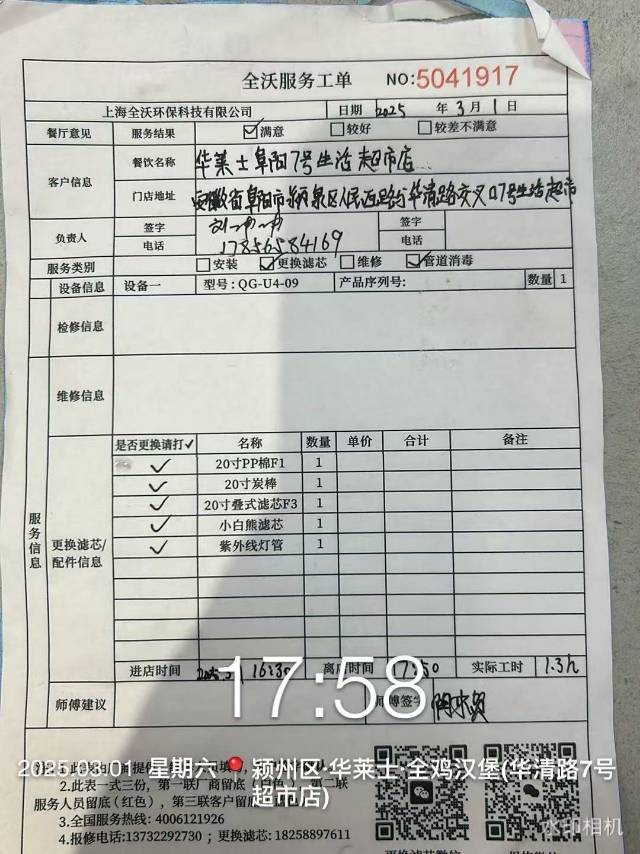 全沃服务工单 NO:5041917
上海全沃环保科技有限公司 日期 2025 年 3 月 1 日
餐厅意见 服务结果 ☑满意 □较好 □较差不满意
客户信息 餐饮名称 华莱士阜阳7号生活超市店
门店地址 安徽省阜阳市颍泉区人民西路与华清路交叉口7号生活超市
负责人 签字 签字
电话 17856584169 电话
服务类别 □安装 ☑更换滤芯 □维修 ☑管道消毒
设备信息 设备一 型号:QG-U4-09 产品序列号: 数量 1
检修信息
维修信息
服务信息
更换滤芯/配件信息
是否更换请打✓ 名称 数量 单价 合计 备注
✓ 20寸PP棉F1 1
✓ 20寸炭棒 1
✓ 20寸叠式滤芯F3 1
✓ 小白熊滤芯 1
✓ 紫外线灯管 1
进店时间 16:30 离店时间 17:50 实际工时 1.3h
17:58
师傅建议 师傅签字
2025.03.01 星期六 颍州区·华莱士·全鸡汉堡(华清路7号超市店)
2.此表一式三份,第一联厂商留底(白色),第二联
服务人员留底(红色),第三联客户留底
3.全国服务热线:4006121926
4.报修电话:13732292730 ; 更换滤芯:18258897611
水印相机